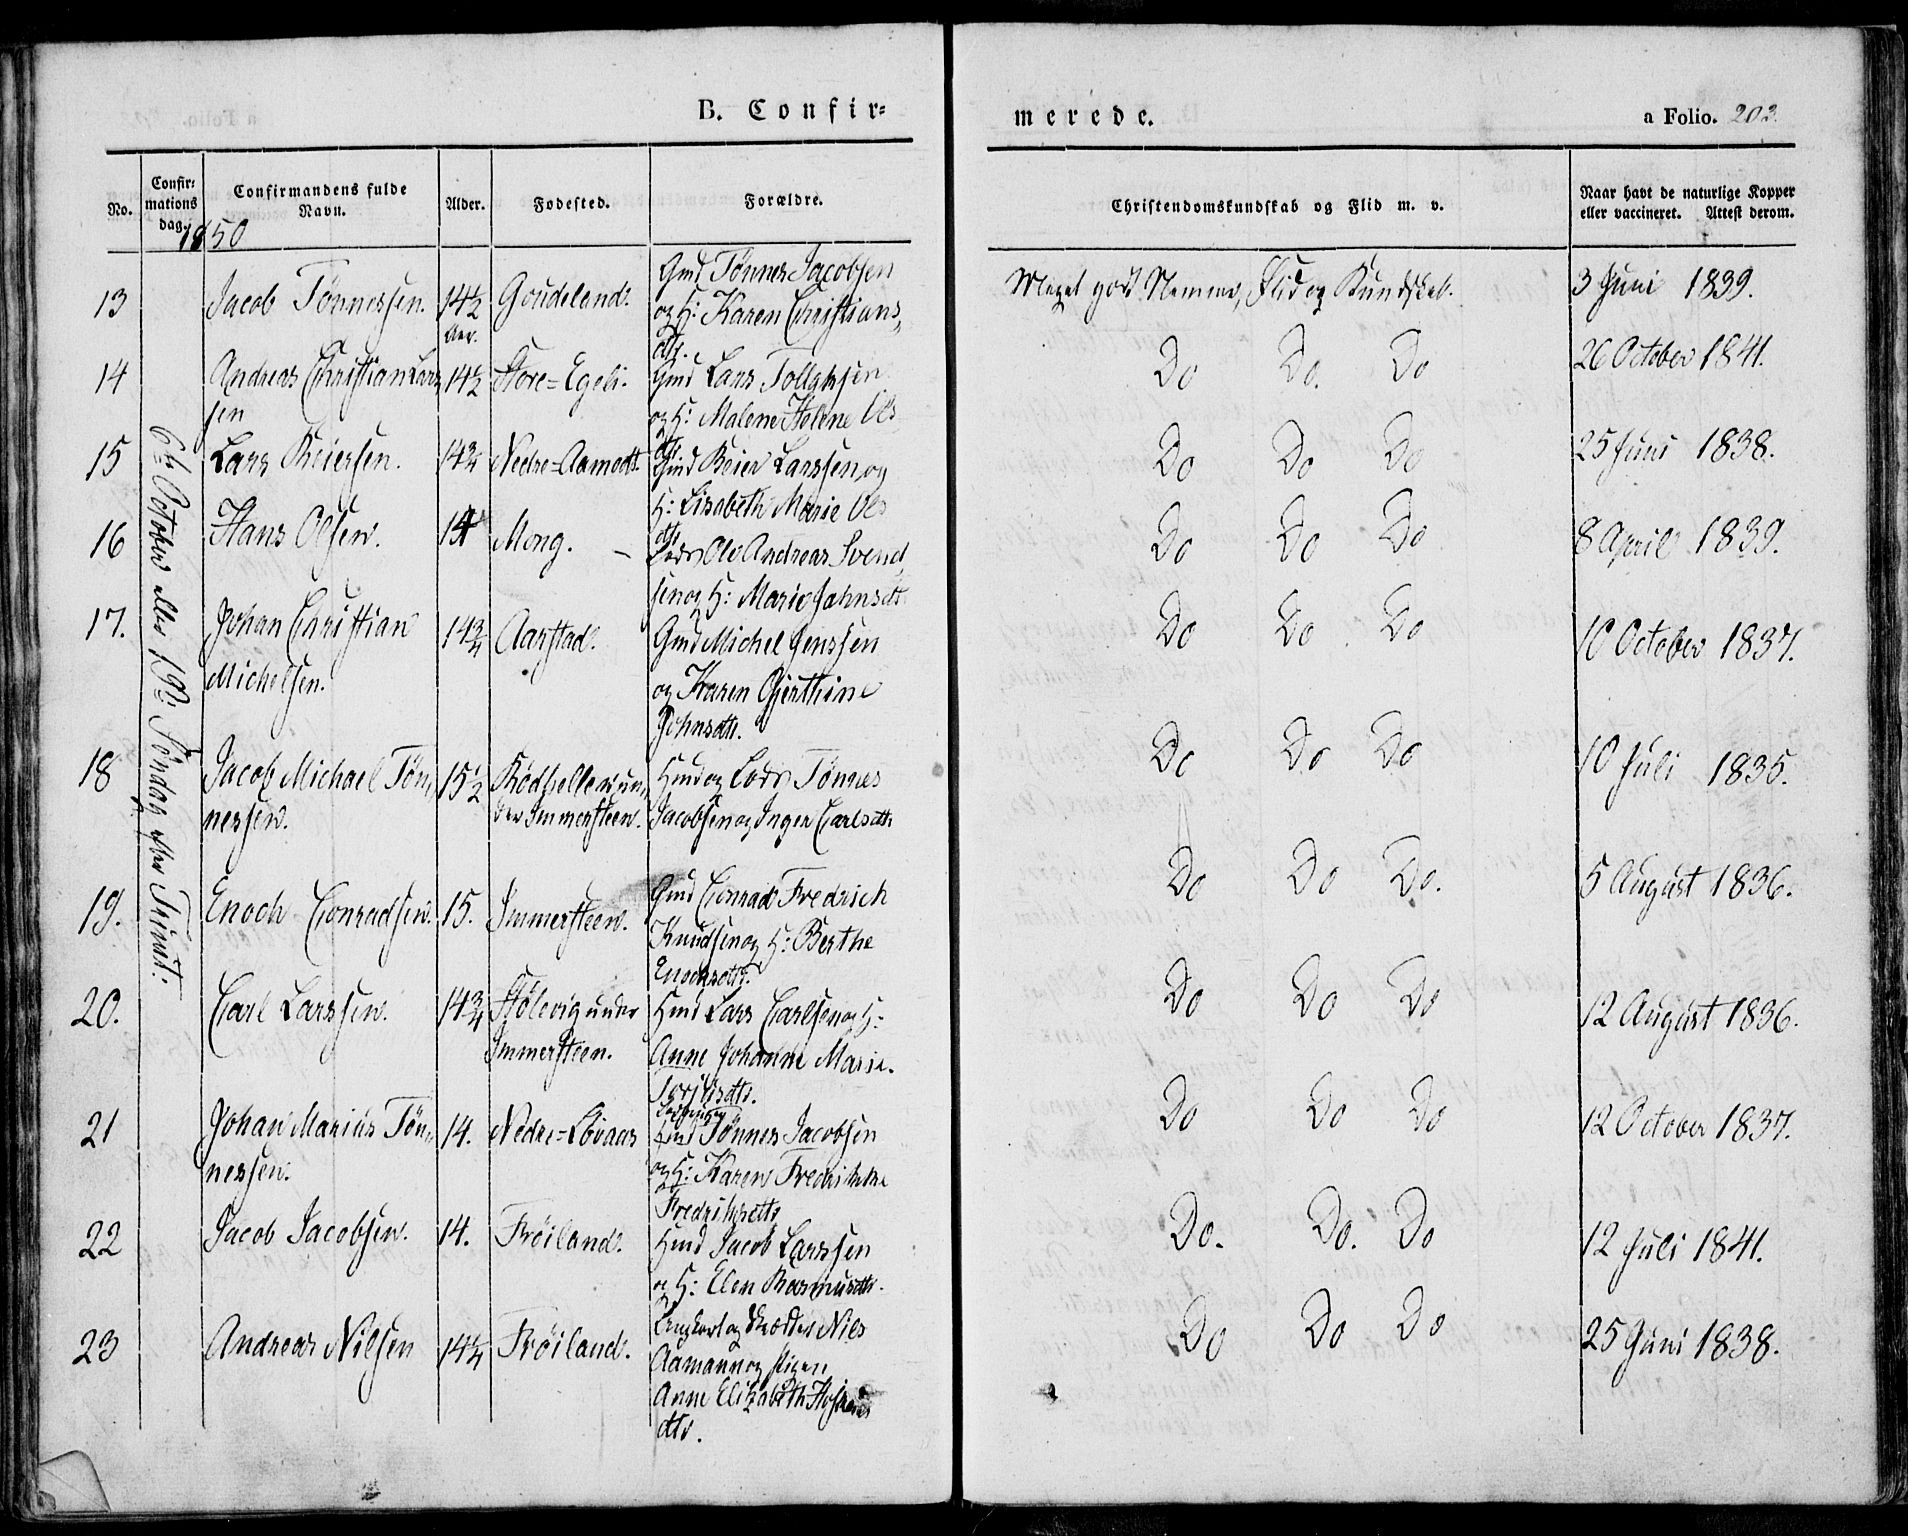 B. Confir=
merede.
a Folio. 203.
No.
Confir=
mations
dag.
Confirmandens fulde
Navn.
Alder.
Fødested.
Forældre.
Christendomskundskab og Flid m. v.
Naar havt de naturlige Kopper
eller vaccineret. Attest derom.
1850
6te October eller 19de Søndag efter Trinit:
13
Jacob Tønnessen.
14½
Aar.
Goudeland.
Gmd Tønnes Jacobsen
og H: Karen Christians,
dtr.
Meget godt Nemme, Flid og Kundskab.
3 Juni 1839.
14
Andreas Christian Lars
sen
14½
Store=Egeli.
Gmd Lars Tollaksen
og H: Malene Helene Ols
dtr.
Do Do. Do
26 October 1841.
15
Lars Reiersen.
14¾
Nedre=Aamodt.
Gmd Reier Larssen og
H: Lisabeth Marie Ols
dtr.
Do Do Do
25 Juni 1838.
16
Hans Olsen.
14
Mong.
Lods Ole Andreas Svend,
sen og H: Marie Jahnsdtr.
Do Do Do
8 April 1839.
17.
Johan Christian
Michelsen.
14¾
Aarstad.
Gmd Michel Jenssen
og Karen Gjerthine
Johnsdtr.
Do Do Do
10 October 1837.
18
Jacob Michael Tøn,
nessen.
15½
Rødhelleren un,
der Immersteen.
Hmd og Lods Tønnes
Jacobsen og Inger Carlsdtr
Do Do Do
10 Juli 1835.
19.
Enoch Conradsen.
15.
Immersteen.
Gmd Conrad Fredrich
Knudsen og H: Berthe
Enochsdtr.
Do Do Do.
5 August 1836.
20.
Carl Larssen.
14¾
Stølevig under
Immersteen.
Hmd Lars Carlsen og H:
Anne Johanne Marie
Do Do Do
12 August 1836.
21
Johan Marius Tøn,
nessen.
14.
Nedre=Løvaas
Tønnes Jacobsen
og H: Karen Fredrikke
Fredriksdtr
Do Do Do
12 October 1837.
22
Jacob Jacobsen.
14.
Frøiland.
Hmd Jacob Larssen
og H: Elen Rasmusdtr.
Do. Do. Do
12 Juli 1841.
23
Andreas Nilsen
14¼
Frøiland.
Ungkarl og Skrædder Nils
Aamann og Pigen
Anne Elizabeth
dtr.
Do Do Do
25 Juni 1838.